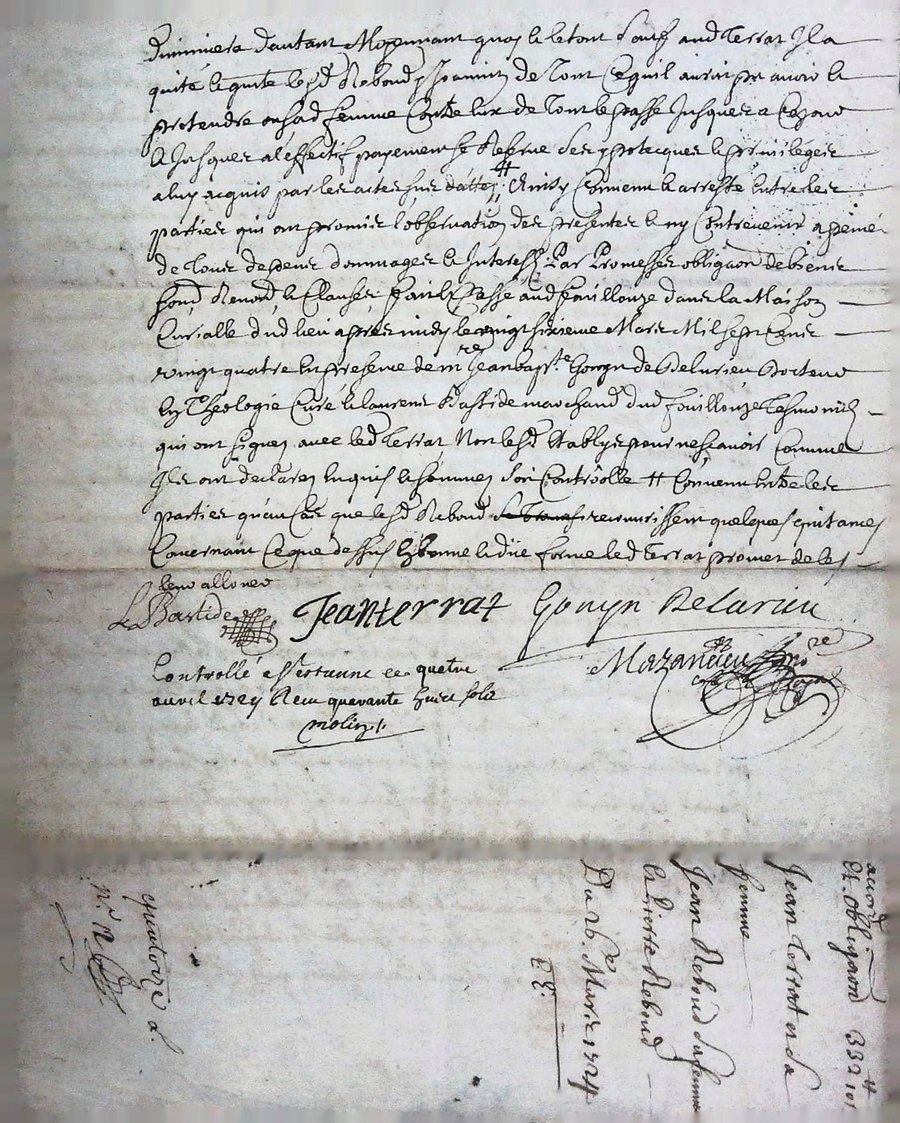 d'autant Moyennant quoy le tout sauf aud Terrat Il a
quité le quitte led Reboud de tout ce quil auroit pu avoir le
pretendre ou sad femme Contre lux de tout le passé Jusques a Ce jour
le Jusques a l'effectif payement se Reserve ses ypotecques le privileges
a luy acquis par les actes sus # Ainsy Convenu le arresté Entre les
parties qui ont promis l'observation des presentes le ny Contrevenir a peine
de tous depens dommages le Interests Par Promesses obligaon de biens
Renonc le Clauses fait le Passé aud fouillouze dans la Maison
Curialle dud lieu apres midy le vingt sixieme Mars Mil sept Cens
vingt quatre En presence de mre Jean bapte Gonyn de Belurieu Docteur
En Theologie Curé le laurens Bastide marchand dud fouillouze Tesmoins
qui ont signes avec led Terrat Non lesd Establys pour ne scavoir Comme
Ils ont declares Enquis le sommes Soit Controlle # Convenu Entre les
parties qu'au Cas que lesd Reboud recouvrissent quelques quitances
Concernant Ce que dessus En bonne le düe forme led Terrat promet de les
leur allouer
L Bastide Jean terrat Gonyn De
Controllé a St estienne ce quatre
avril 1724 Receu quarante huict sols
molin
accord
Et obligaon 332 # 10s
Jean Terrat et sa
femme
Jean Reboud sa femme
le pierre Reboud
Du 26e Mars 1724
EE.